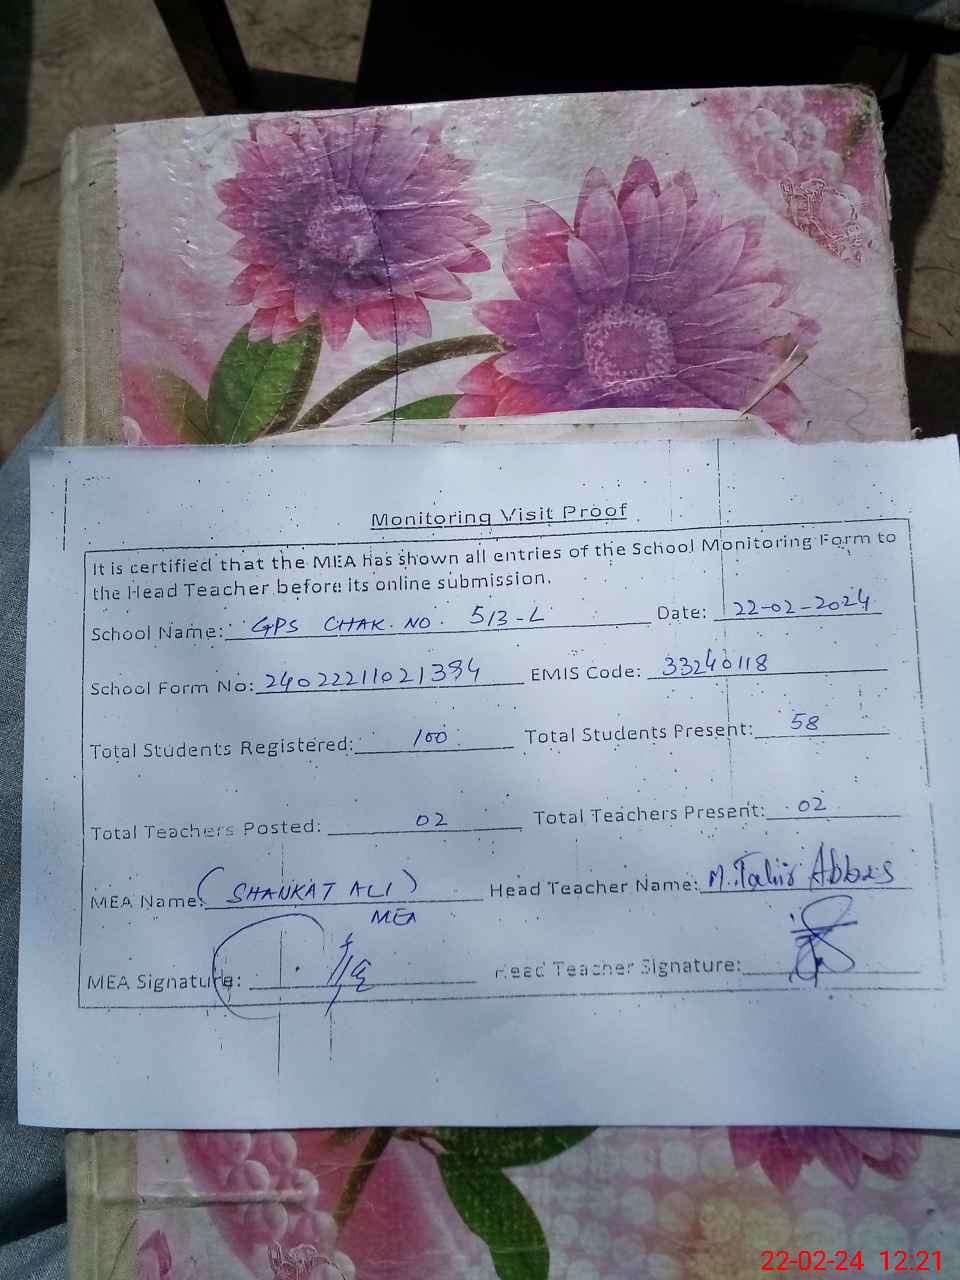 Monitoring Visit Proof
It is certified that the MEA has shown all entries of the School Monitoring Form to
the Head Teacher before its online submission.
School Name: GPS CHAK. NO. 513-L Date: 22-02-2024
School Form No: 24022211021394 EMIS Code: 33240118
Total Students Registered: 100 Total Students Present: 58
Total Teachers Posted: 02 Total Teachers Present: 02
MEA Name: (SHAUKAT ALI) Head Teacher Name: M. Tahir Abbas
MEA
MEA Signature: Head Teacher Signature:
22-02-24 12:21